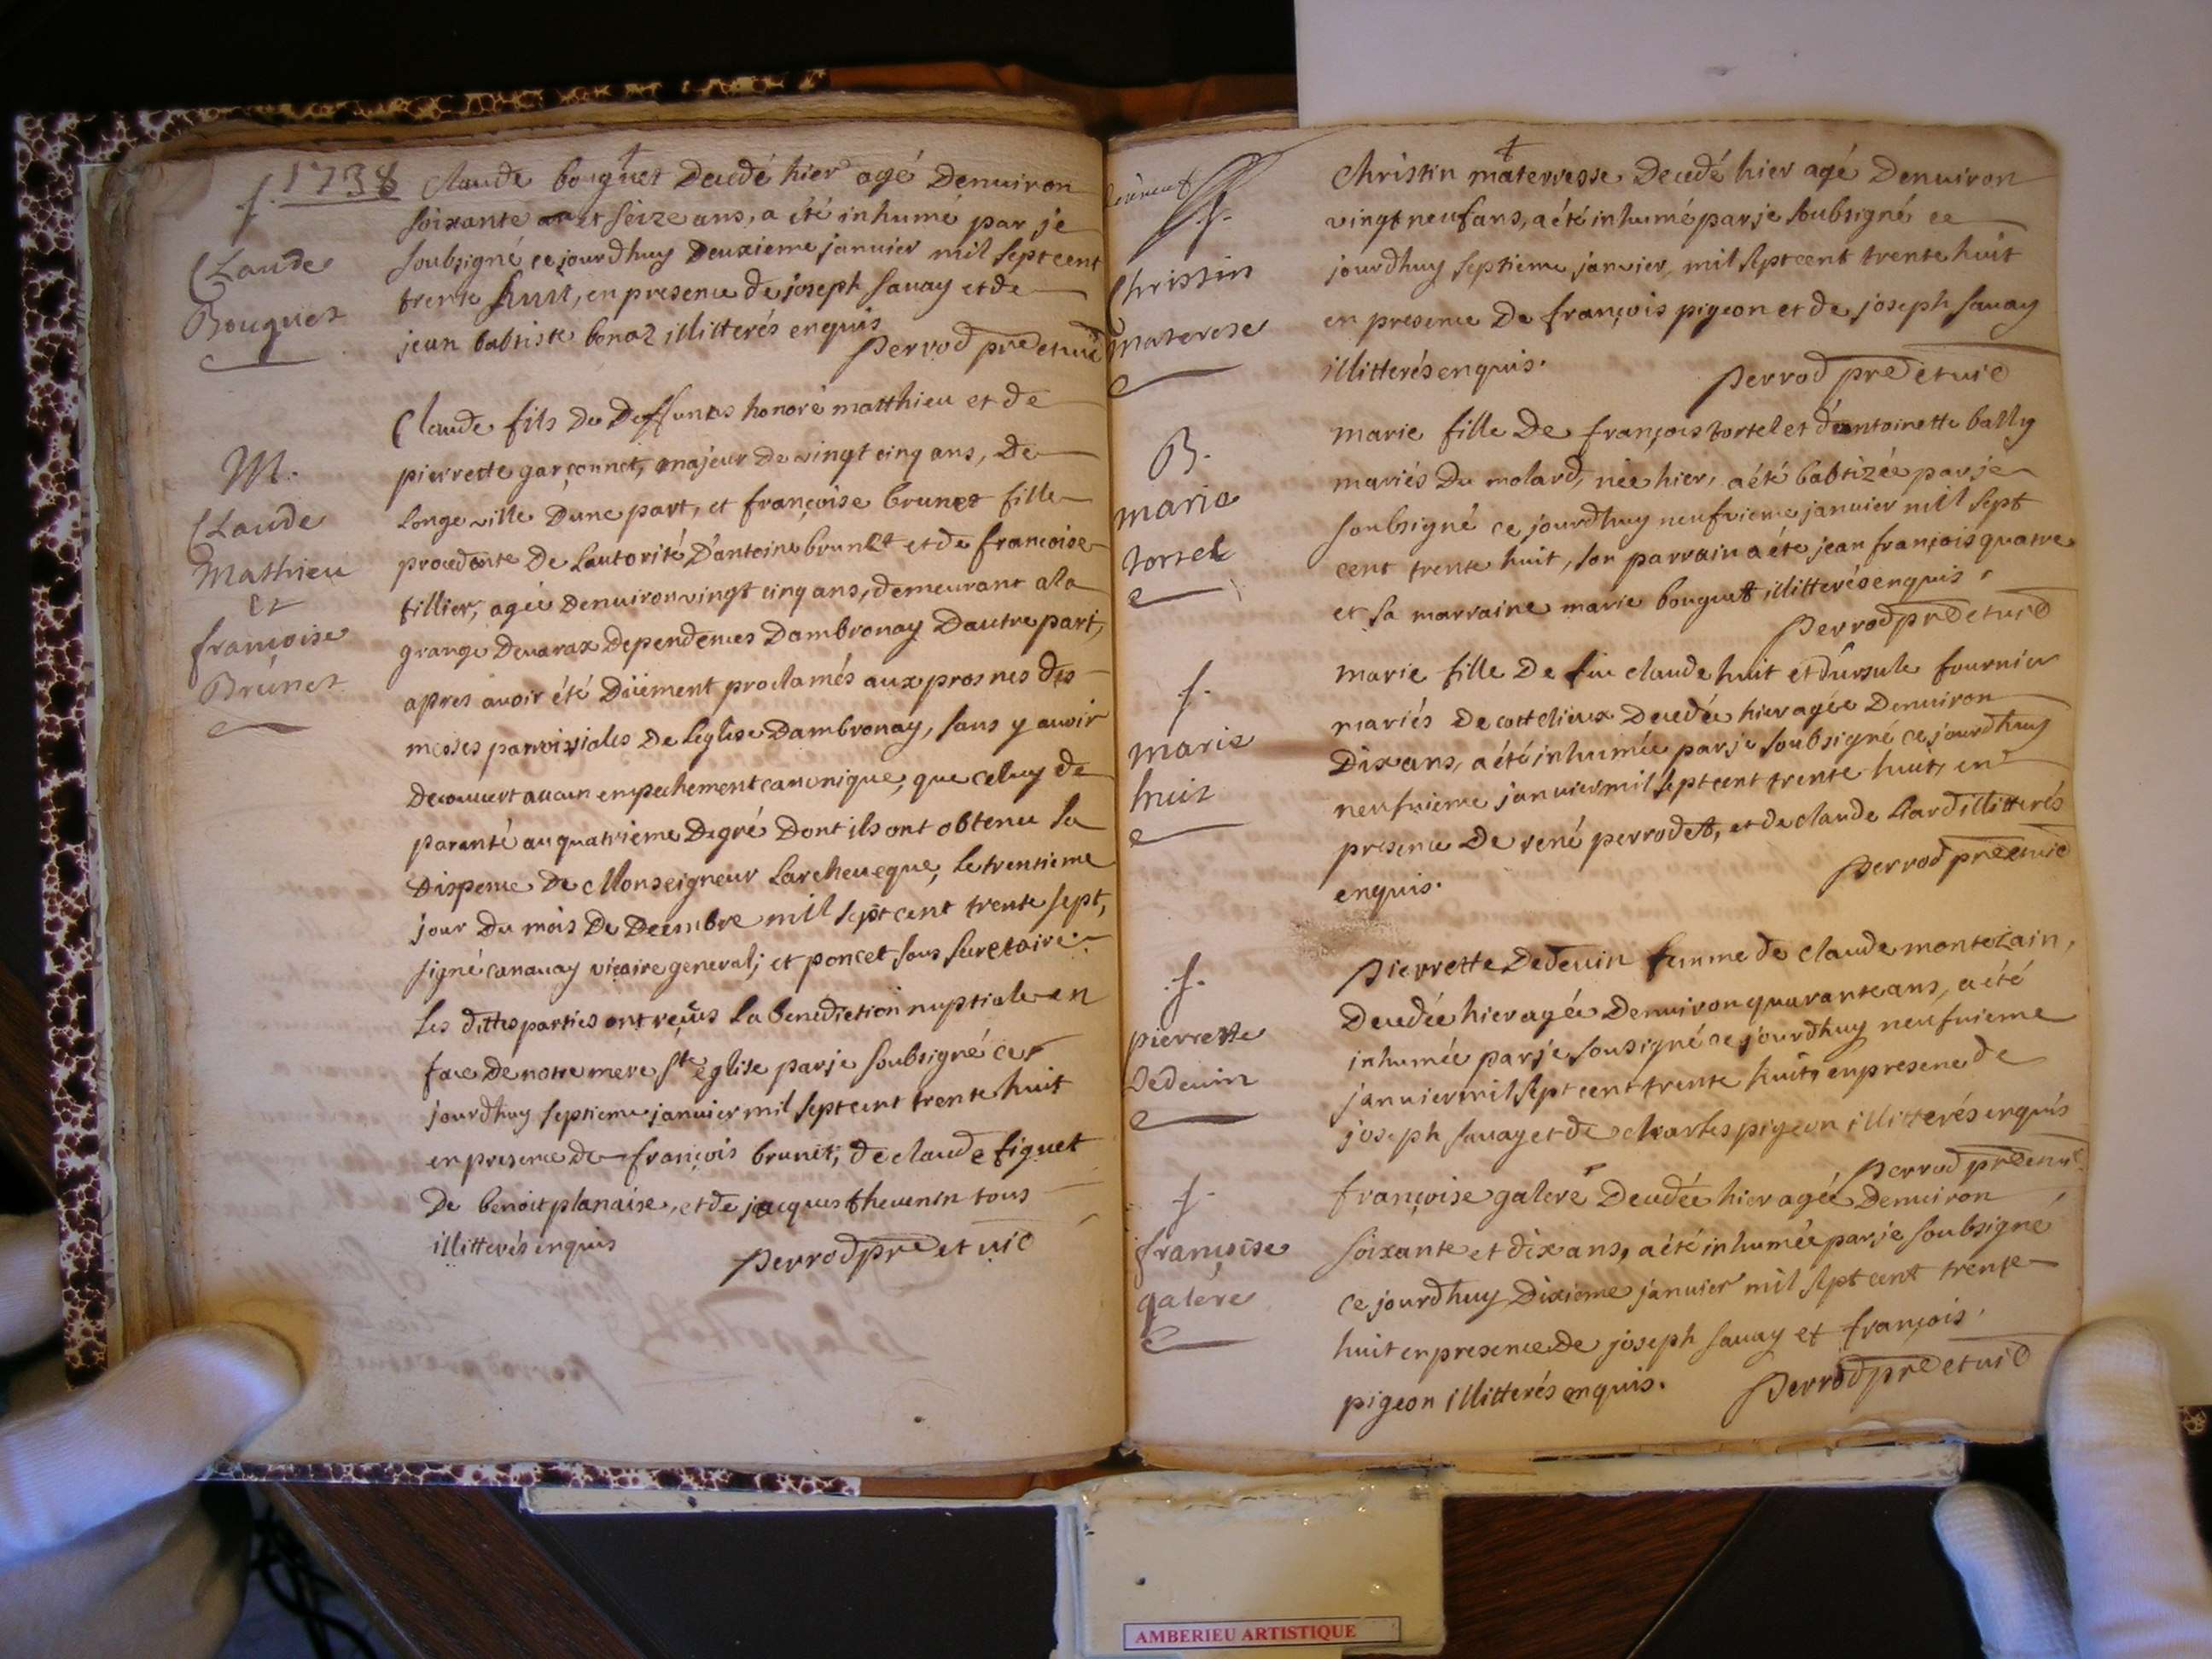 f. 1738
Claude
Bouguet
claude bouguet decedé hier agé denuiron
soixante et seize ans, a été inhumé par je
soubsigné ce jourdhuy deuxieme januier mil sept cent
trente huit, en presence de joseph sauay et de
jean babtiste bonaz illitterés enquis
perrod pre et uic
M.
Claude
Mathieu
et
françoise
Brunet
Claude fils de deffunts honoré matthieu et de
pierrette garçonnet, majeur de vingt cinq ans, de
Longeville d'une part, et françoise brunet fille
procedante de Lautorité d'antoine brunet et de françoise
tillier, agée denuiron vingt cinq ans, demeurant a la
grange deuarax dependences dambronay dautre part,
apres auoir été düement proclamés aux prosnes des
messes parroissiales de Leglise dambronay, sans y auoir
decouuert aucun empechement canonique, que celuy de
paranté au quatrieme degré dont ils ont obtenu La
dispense de Monseigneur Larcheueque, le trentieme
jour du mois de decembre mill sept cent trente sept,
signé canauay vicaire general; et poncet sous secretaire.
Les dittes parties ont reçus la benediction nuptiale en
face de notre mere ste eglise par je soubsigné ce
jourdhuy septieme januier mil sept cent trente huit
en presence de françois brunet, de claude figuet
de benoit planaise, et de jacques theuenin tous
illitterés enquis
perrod pre et uic
f.
Christin
materese
christin materesse decedé hier agé denuiron
vingt neuf ans, a été inhumé par je soubsigné ce
jourdhuy septieme januier, mil sept cent trente huit
en presence de françois pigeon et de joseph sauay
illitterés enquis.
perrod pre et uic
B.
marie
tortel
marie fille de françois tortel et d'antoinette bally
mariés du molard, née hier, a été babtizée par je
soubsigné ce jourdhuy neufuieme januier mil sept
cent trente huit, son parrain a été jean françois quatre
et sa marraine marie bouguet illitterés enquis,
perrod pre et uic
f.
marie
huit
marie fille de feu claude huit et d'ursule fournier
mariés de cottelieux decedée hier agée denuiron
dix ans, a été inhumée par je soubsigné ce jourdhuy
neufuieme januier mil sept cent trente huit, en
presence de rené perrodet, et de claude Liard illitterés
enquis.
perrod pre et uic
f.
pierrette
dedeuin
pierrette dedeuin femme de claude montezain,
decedée hier agée denuiron quarante ans, a été
inhumée par je sousigné ce jourdhuy neufuieme
januier mil sept cent trente huit, en presence de
joseph sauay et de charles pigeon illitterés enquis
perrod pre et uic
f.
françoise
galere
françoise galere decedée hier agée denuiron
soixante et dix ans, a été inhumée par je soubsigné
ce jourdhuy dixieme januier mil sept cent trente
huit en presence de joseph sauay et françois
pigeon illitterés enquis.
perrod pre et uic
AMBERIEU ARTISTIQUE